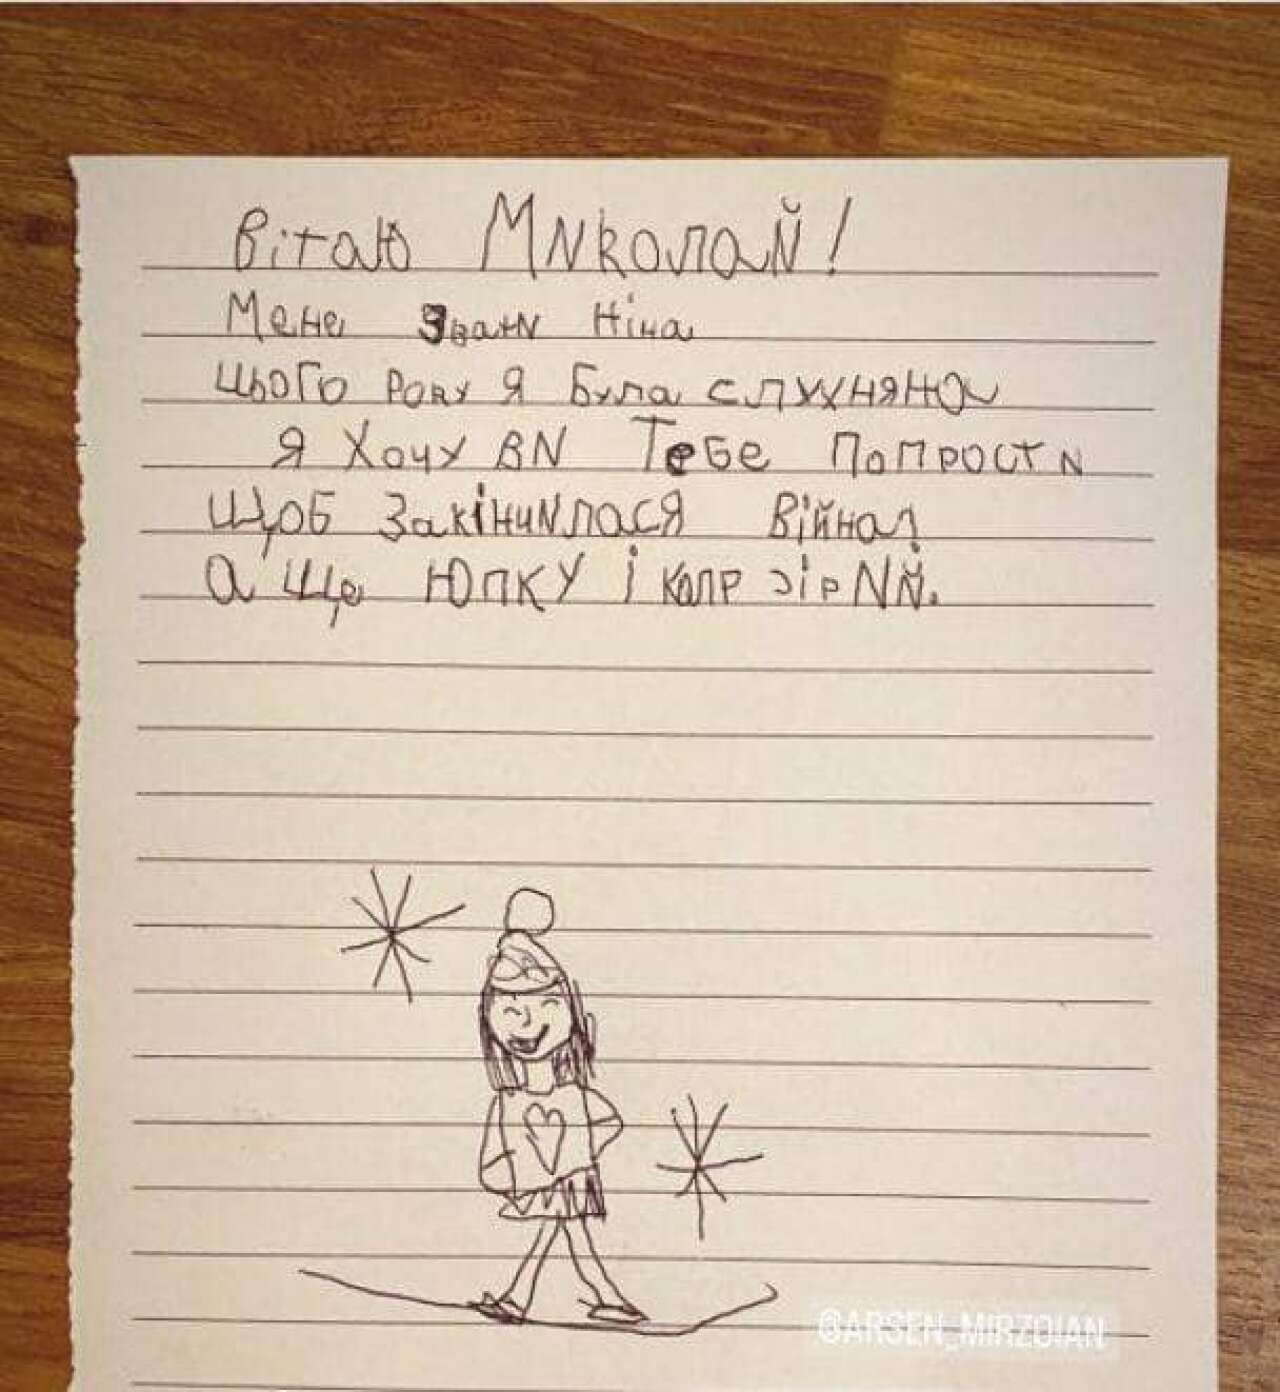 Вітаю Миколай!
Мене звати Ніна
Цього року я була слухняна
я хочу ви тебе попрости
щоб закінчилася війна!
А ще юпку і колр зірий.
@ARSEN_MIRZOIAN